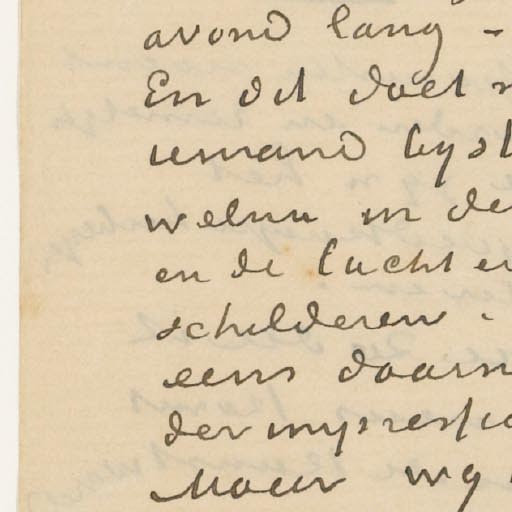 avond lang -
En dit doet
iemand byst
welnu in de
en de lucht e
schilderen.
eens daarn
der impressio
Maar wy